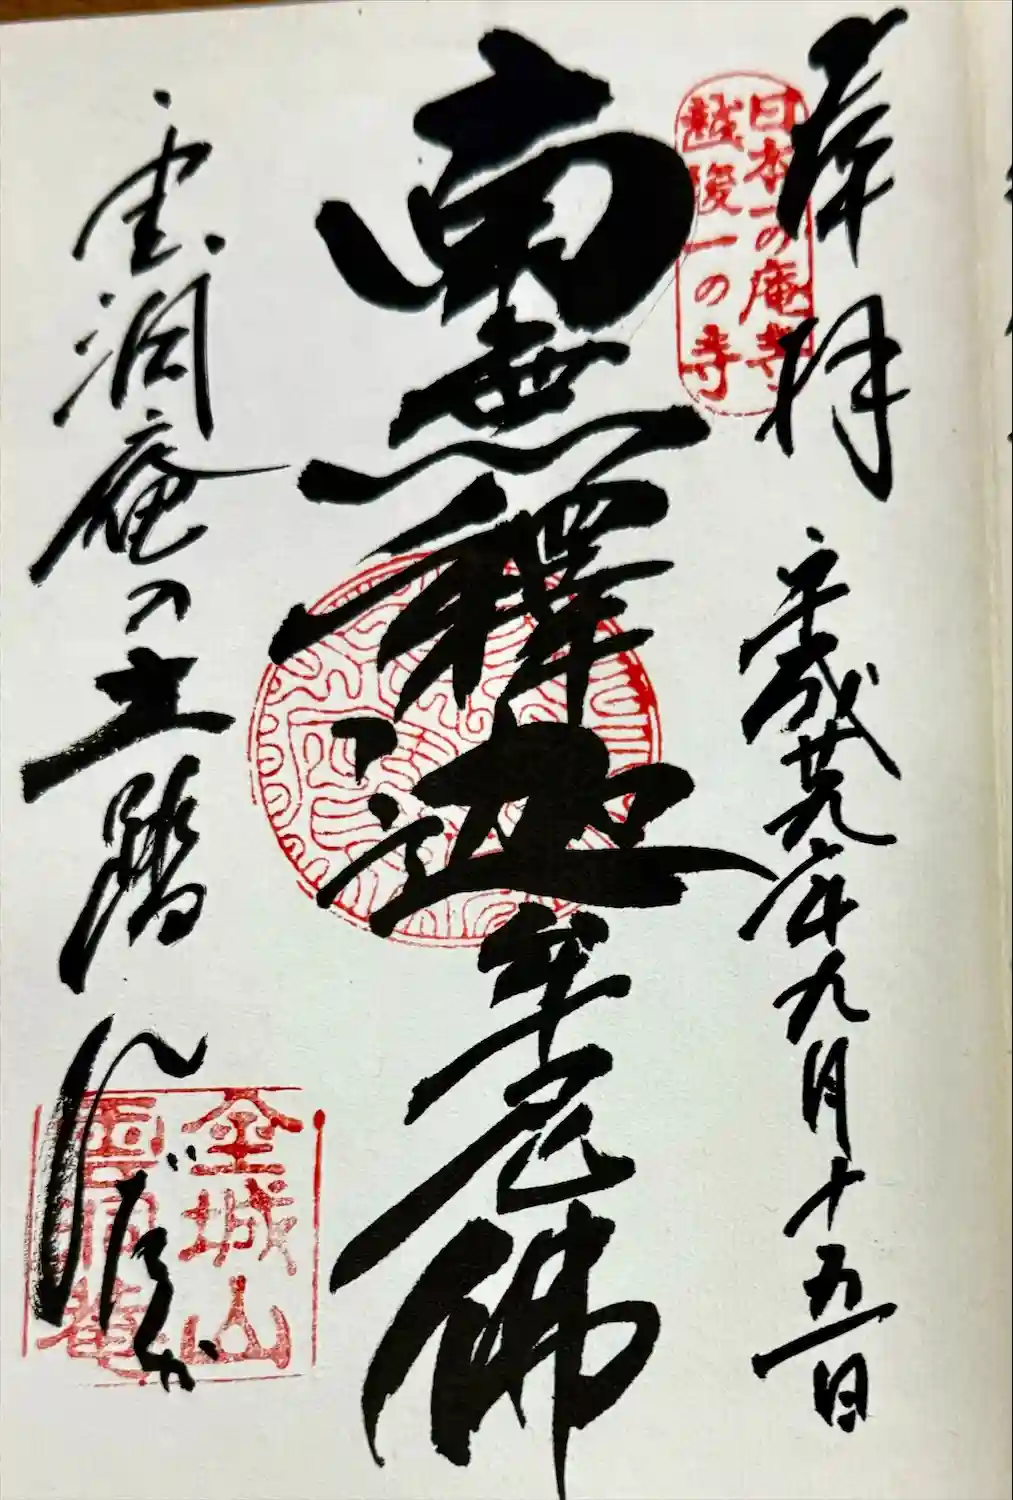 奉拝
平成廿九年九月十五日
日本一の庵寺
越後一の寺
南無釋迦牟尼佛
雲洞庵の土踏んだか
金城山
雲洞庵